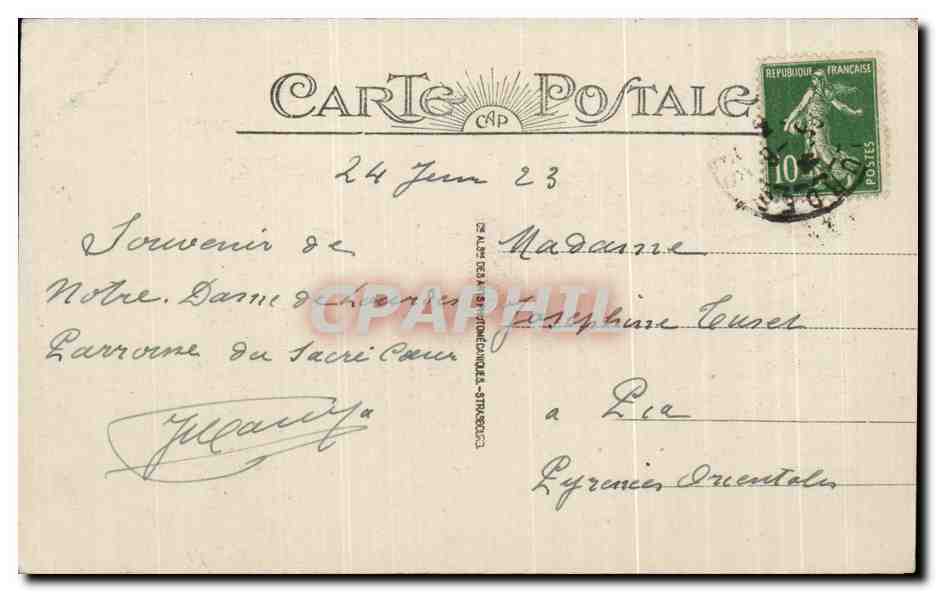 CARTE POSTALE
CAP
REPUBLIQUE FRANÇAISE
10
POSTES
24 Juin 23
Souvenir de
Notre. Dame de Lourdes
Parroisse du Sacré Cœur
Madame
Joséphine Turet
a Pia
Pyrenées Orientales
CIE ALSNE DES ARTS PHOTOMÉCANIQUES.-STRASBOURG
CPAPHIL